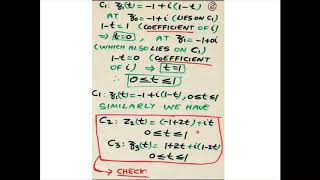 C1: z1(t) = -1 + i(1-t) ②
AT z0 = -1+i (LIES ON C1)
1-t = 1 (COEFFICIENT OF i)
⇒ t=0, AT z1 = -1+0i
(WHICH ALSO LIES ON C1)
1-t = 0 (COEFFICIENT
OF i) ⇒ t=1
∴ 0≤t≤1
C1: z1(t) = -1+i(1-t), 0≤t≤1
SIMILARLY WE HAVE
C2: z2(t) = (-1+2t)+it
0≤t≤1
C3: z3(t) = 1+2t+i(1-2t)
0≤t≤1
→ CHECK